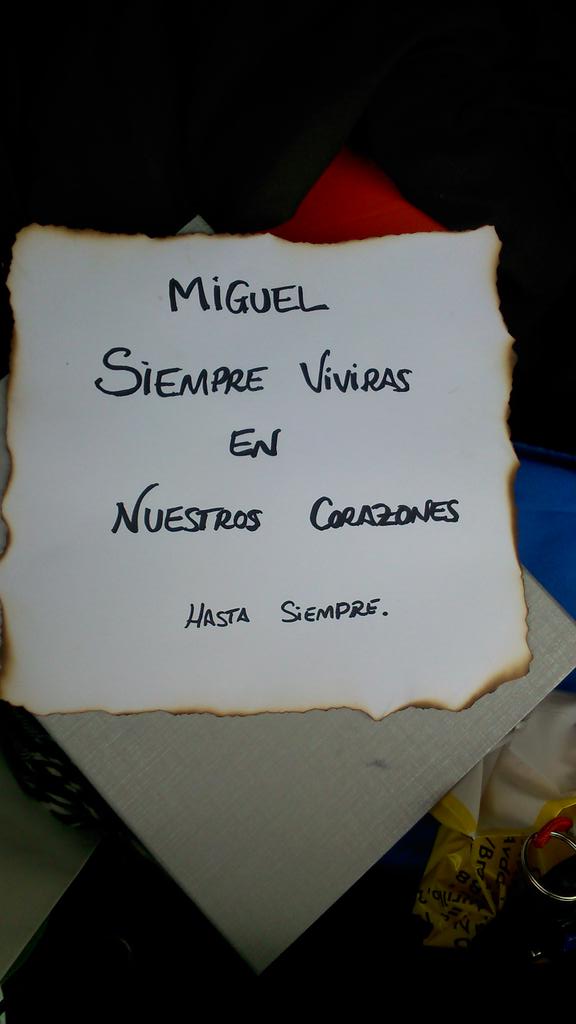 MIGUEL
SIEMPRE VIVIRAS
EN
NUESTROS CORAZONES
HASTA SIEMPRE.